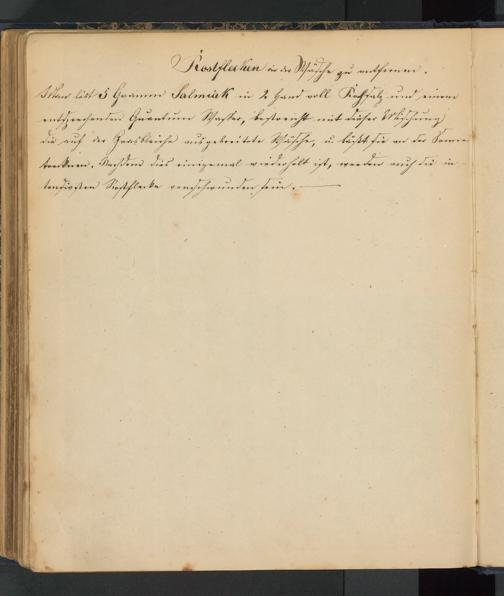 Rostflecken in der Wäsche zu entfernen.
Man löst 5 Gramm Salmiak in 2 Hand voll Kochsalz und einem
entsprechenden Quantum Wasser, bestreicht mit dieser Mischung
die auf der Grasbleiche ausgebreitete Wäsche, u. läßt sie an der Sonne
trocknen. Nachdem dies einigemal wiederholt ist, werden auch die in
tensivsten Rostflecke verschwunden sein. —